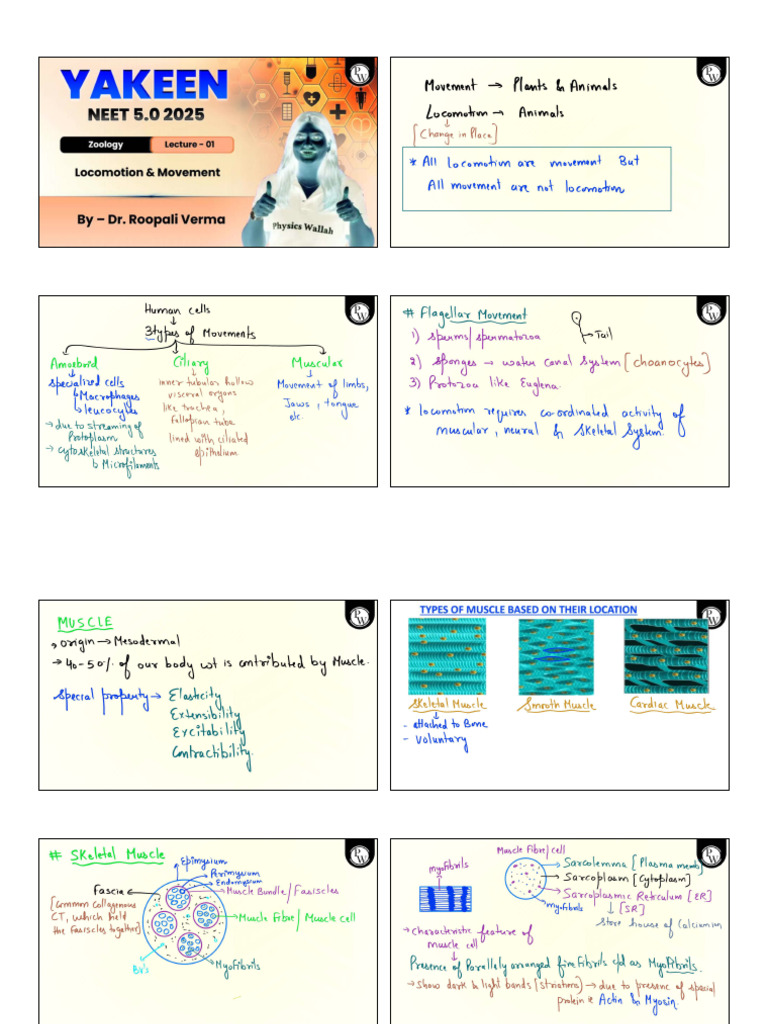 YAKEEN
NEET 5.0 2025
Zoology
Lecture - 01
Locomotion & Movement
By – Dr. Roopali Verma
Physics Wallah
PW
Movement → Plants & Animals
Locomotion → Animals
[Change in Place]
* All locomotion are movement But
All movement are not locomotion
PW
Human cells
3 types of Movements
Amoeboid
Specialized cells
↳ Macrophages
↳ leucocytes
→ due to streaming of
Protoplasm
→ Cytoskeletal structures
↳ Microfilaments
Ciliary
inner tubular hollow
visceral organs
like trachea,
fallopian tube
lined with ciliated
epithelium
Muscular
Movement of limbs,
Jaws, tongue
etc.
PW
# Flagellar Movement
1) Sperms/spermatozoa
Tail
2) Sponges → water canal system [choanocytes]
3) Protozoa like Euglena.
* locomotion requires co-ordinated activity of
muscular, neural & skeletal system.
PW
MUSCLE
→ origin → Mesodermal
→ 40-50% of our body wt is contributed by Muscle.
Special property → Elasticity
Extensibility
Excitability
Contractibility.
PW
TYPES OF MUSCLE BASED ON THEIR LOCATION
PW
Skeletal Muscle
- attached to Bone
- Voluntary
Smooth Muscle
Cardiac Muscle
# Skeletal Muscle
PW
Epimysium
Perimysium
Endomysium
Fascia
[common collagenous
CT, which held
the fasicles together]
Muscle Bundle/Fasiscles
Muscle Fibre/Muscle cell
Myofibrils
BV's
Muscle Fibre/cell
PW
myofibrils
Sarcolemma [Plasma memb]
Sarcoplasm [Cytoplasm]
Sarcoplasmic Reticulum [ER]
myofibrils
[SR]
store house of Calcium
→ characteristic feature of
muscle cell
Presence of Parallely arranged fine Fibrils c/d as Myofibrils.
→ Show dark & light bands (striations) → due to presence of special
protein ie Actin & Myosin.